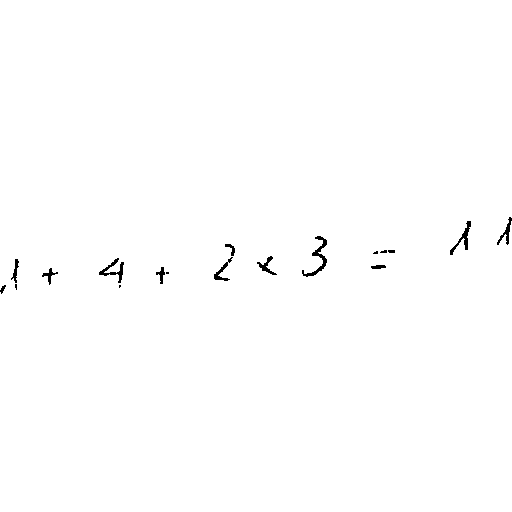 1 + 4 + 2 × 3 = 11